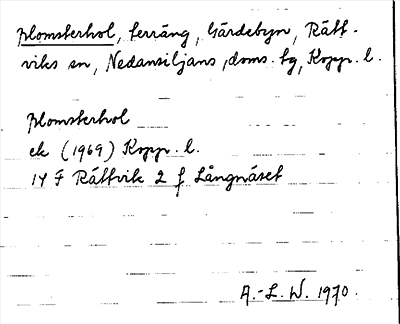 Plomsterhol, terräng, Gärdebyn, Rätt-
viks sn, Nedansiljans doms. tg, Kopp. l.
Plomsterhol
ek (1969) Kopp. l.
14 F Rättvik 2 f Långnäset
A.-L. W. 1970.